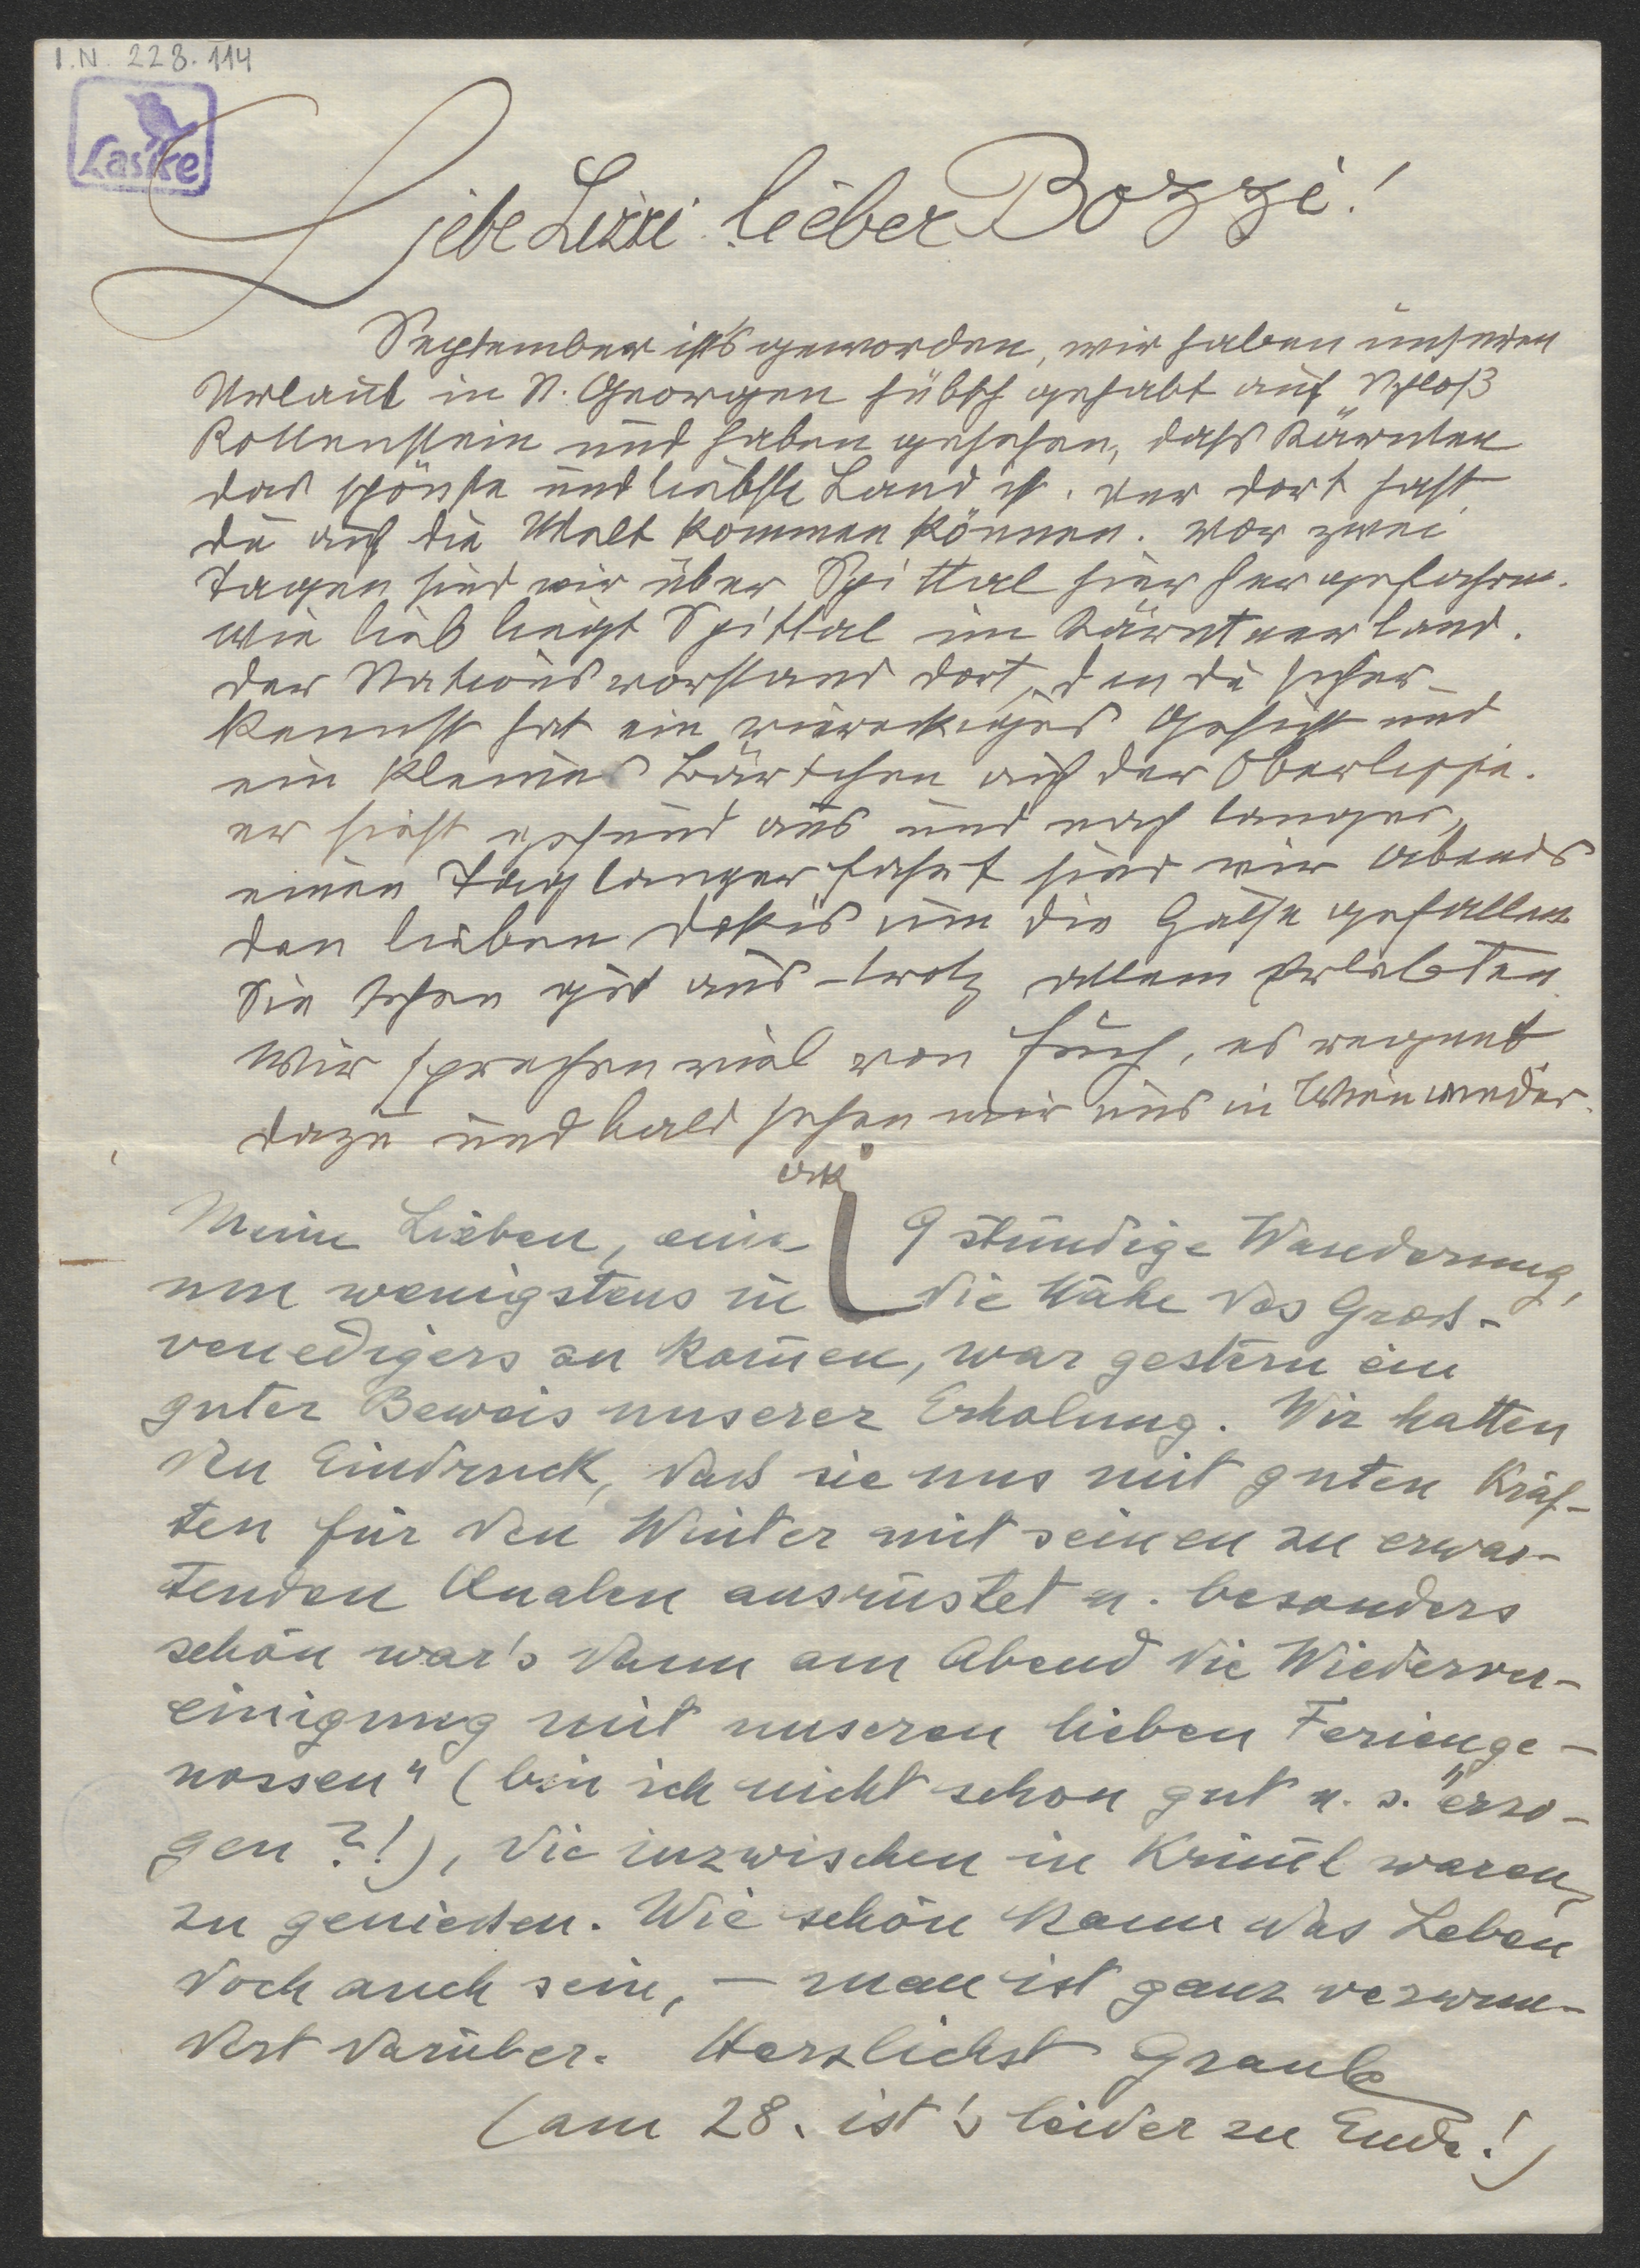 I.N. 228.114
Laske
Liebe Lizzi lieber Bozzi!
September ist's geworden, wir haben unseren
Urlaub in St. Georgen hübsch gehabt auf Schloß
Rottenstein und haben gesehen, dass Kärnten
das schönste und liebste Land ist. nur dort hast
du auf die Welt kommen können. Vor zwei
Tagen sind wir über Spittal hierher gefahren.
Wie lieb liegt Spittal im Kärntnerland.
Der Stationsvorstand dort, den du sicher
kennst hat ein viereckiges Gesicht und
ein kleines Bärtchen auf der Oberlippe.
er sieht gesund aus und nach langer,
einen Tag langer Fahrt sind wir abends
den lieben um die Hälse gefallen
Sie sehen gut aus – trotz allem Erlebten
Wir sprechen viel von Euch, es regnet
dazu und bald sehen wir uns in Wien wieder.
Meine Lieben, eine 9 stündige Wanderung,
um wenigstens in die Nähe des Groß-
venedigers zu kom̄en, war gestern ein
guter Beweis unserer Erholung. Wir hatten
den Eindruck, daß sie uns mit guten Kräf-
ten für den Winter mit seinen zu erwar-
tenden Qualen ausrüstet u. besonders
schön war's dann am Abend die Wiederver-
einigung mit unseren lieben Ferienge-
nossen" (bin ich nicht schon gut u. s. "erzo-
gen?!), die inzwischen in Krim̄l waren,
zu genießen. Wie schön kann das Leben
doch auch sein, – man ist ganz verwun-
dert darüber. Herzlichst Graule
(am 28. ist's leider zu Ende!)